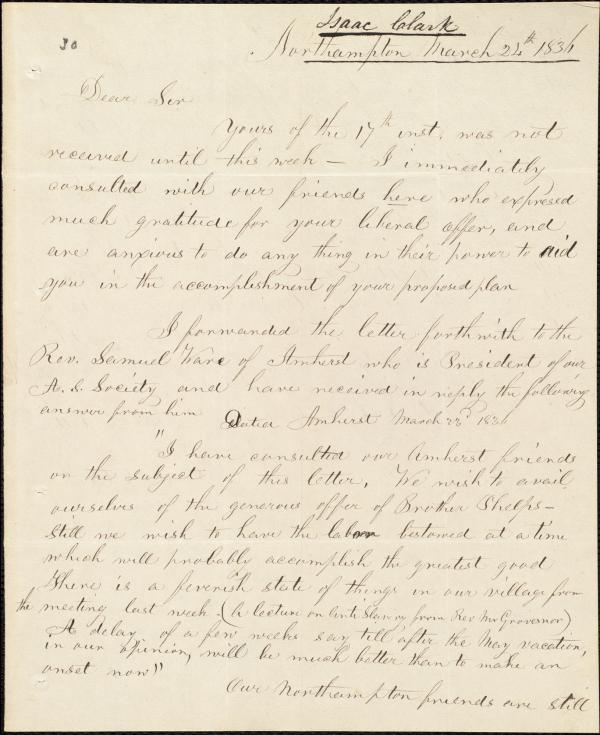 Isaac Clark
30
Northampton March 24th 1836
Dear Sir
Yours of the 17th inst. was not
received until this week — I immediately
consulted with our friends here who expresed
much gratitude for your liberal offer, and
are anxious to do any thing in their power to aid
you in the accomplishment of your proposed plan
I forwarded the letter forthwith to the
Rev. Samuel Ware of Amherst who is President of our
A. S. Society and have received in reply the following
answer from him Dated Amherst March 23d 1836
"I have consulted our Amherst friends
on the subject of this letter. We wish to avail
ourselves of the generous offer of Brother Phelps —
still we wish to have the labor bestowed at a time
which will probably accomplish the greatest good
There is a feverish state of things in our village from
the meeting last week (A lecture on Anti Slavery from Rev Mr Grovenor)
A delay of a few weeks say till after the May vacation,
in our opinion, will be much better than to make an
onset now"
Our Northampton friends are still